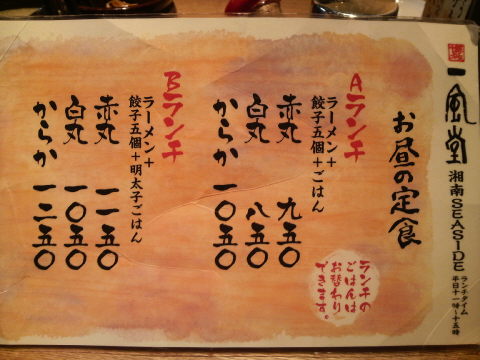 一風堂 湘南SEASIDE
ランチタイム
平日十一時〜十五時
お昼の定食
Aランチ
ラーメン+
餃子五個+ごはん
赤丸 九五〇
白丸 八五〇
からか 一〇五〇
ランチの
ごはんは
お替わり
できます。
Bランチ
ラーメン+
餃子五個+明太子ごはん
赤丸 一一五〇
白丸 一〇五〇
からか 一二五〇